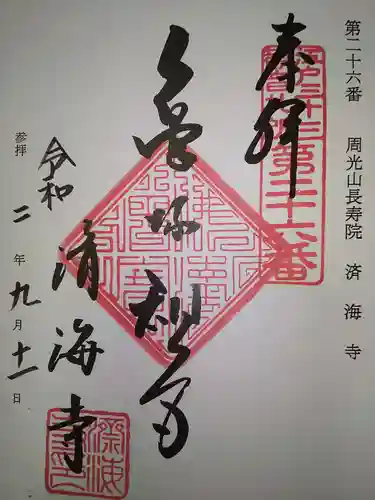 第二十六番 周光山長寿院 済海寺
奉拝
第二十六番
亀塚観音
済海寺
令和二年九月十一日
参拝